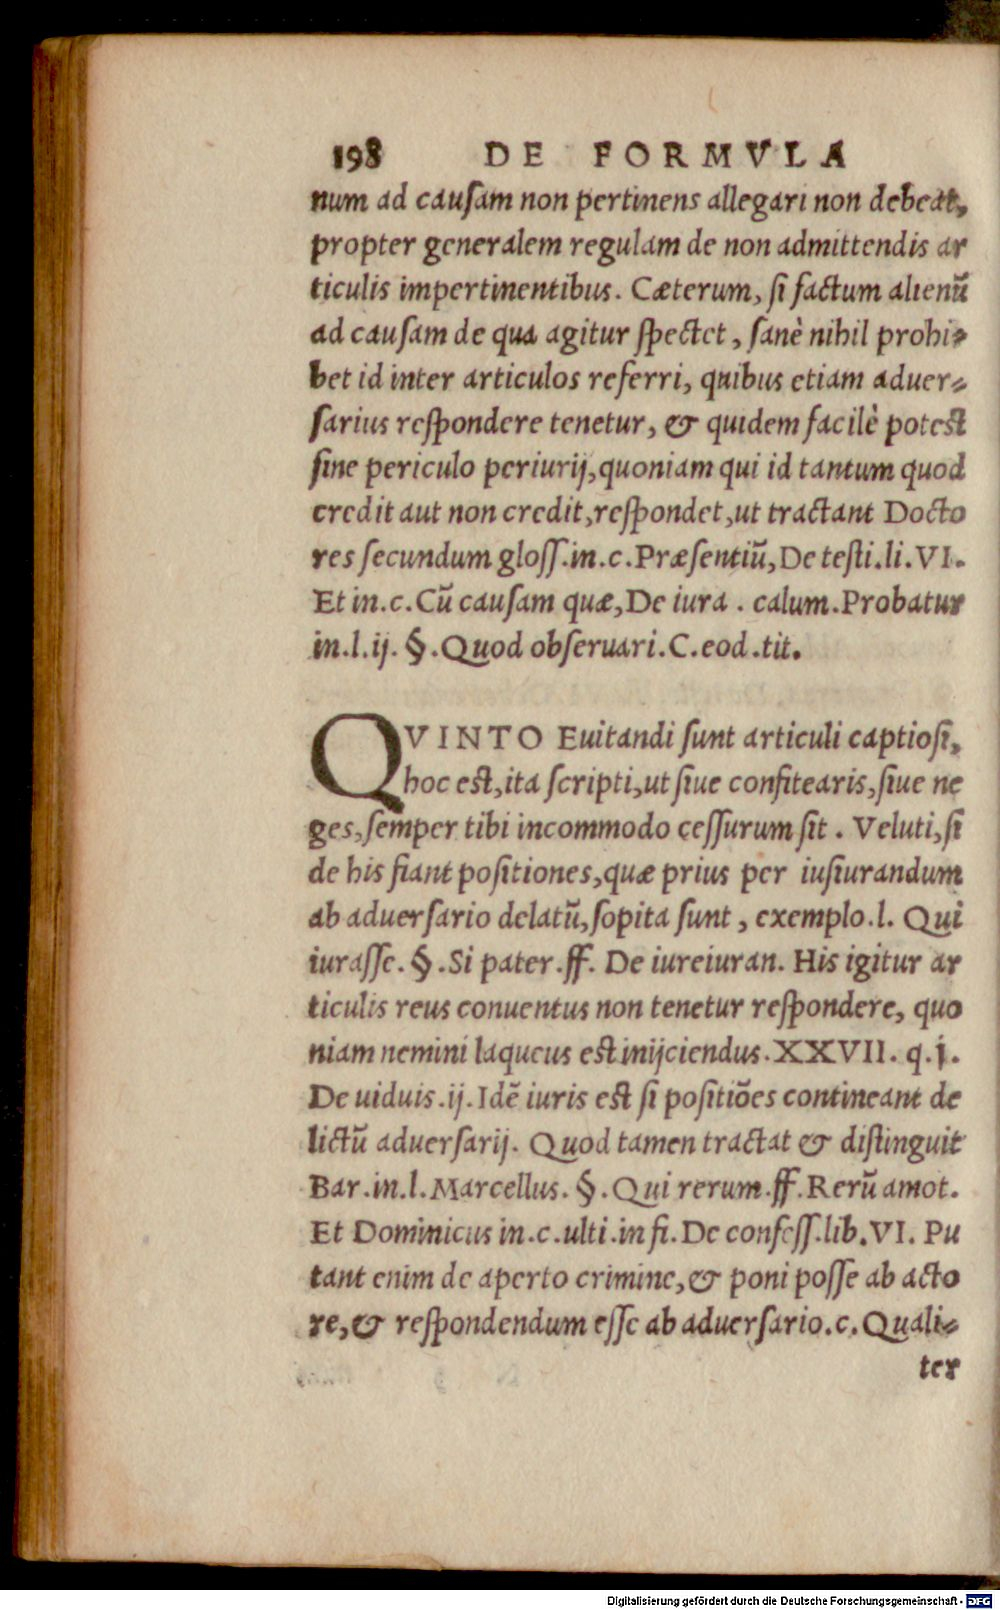 198 DE FORMVLA
num ad cauſam non pertinens allegari non debeat,
propter generalem regulam de non admittendis ar
ticulis impertinentibus. Cæterum, ſi factum alienũ
ad cauſam de qua agitur ſpectet, ſanè nihil prohi-
bet id inter articulos referri, quibus etiam aduer-
ſarius reſpondere tenetur, & quidem facilè poteſt
ſine periculo periurij, quoniam qui id tantum quod
credit aut non credit, reſpondet, ut tractant Docto
res ſecundum gloſſ.in.c.Præſentiũ, De teſti.li.VI.
Et in.c.Cũ cauſam quæ, De iura. calum. Probatur
in.l.ij. §.Quod obſeruari.C.eod.tit.
QVINTO Euitandi ſunt articuli captioſi,
hoc eſt, ita ſcripti, ut ſiue confitearis, ſiue ne
ges, ſemper tibi incommodo ceſſurum ſit. Veluti, ſi
de his fiant poſitiones, quæ prius per iuſiurandum
ab aduerſario delatũ, ſopita ſunt, exemplo.l. Qui
iuraſſe. §.Si pater.ff. De iureiuran. His igitur ar
ticulis reus conuentus non tenetur reſpondere, quo
niam nemini laqueus eſt inijciendus. XXVII. q.j.
De uiduis.ij. Idẽ iuris eſt ſi poſitiões contineant de
lictũ aduerſarij. Quod tamen tractat & diſtinguit
Bar.in.l.Marcellus. §.Qui rerum.ff.Rerũ amot.
Et Dominicus in.c.ulti.in fi.De confeſſ.lib.VI. Pu
tant enim de aperto crimine, & poni poſſe ab acto
re, & reſpondendum eſſe ab aduerſario.c.Quali-
ter
Digitalisierung gefördert durch die Deutsche Forschungsgemeinschaft - DFG